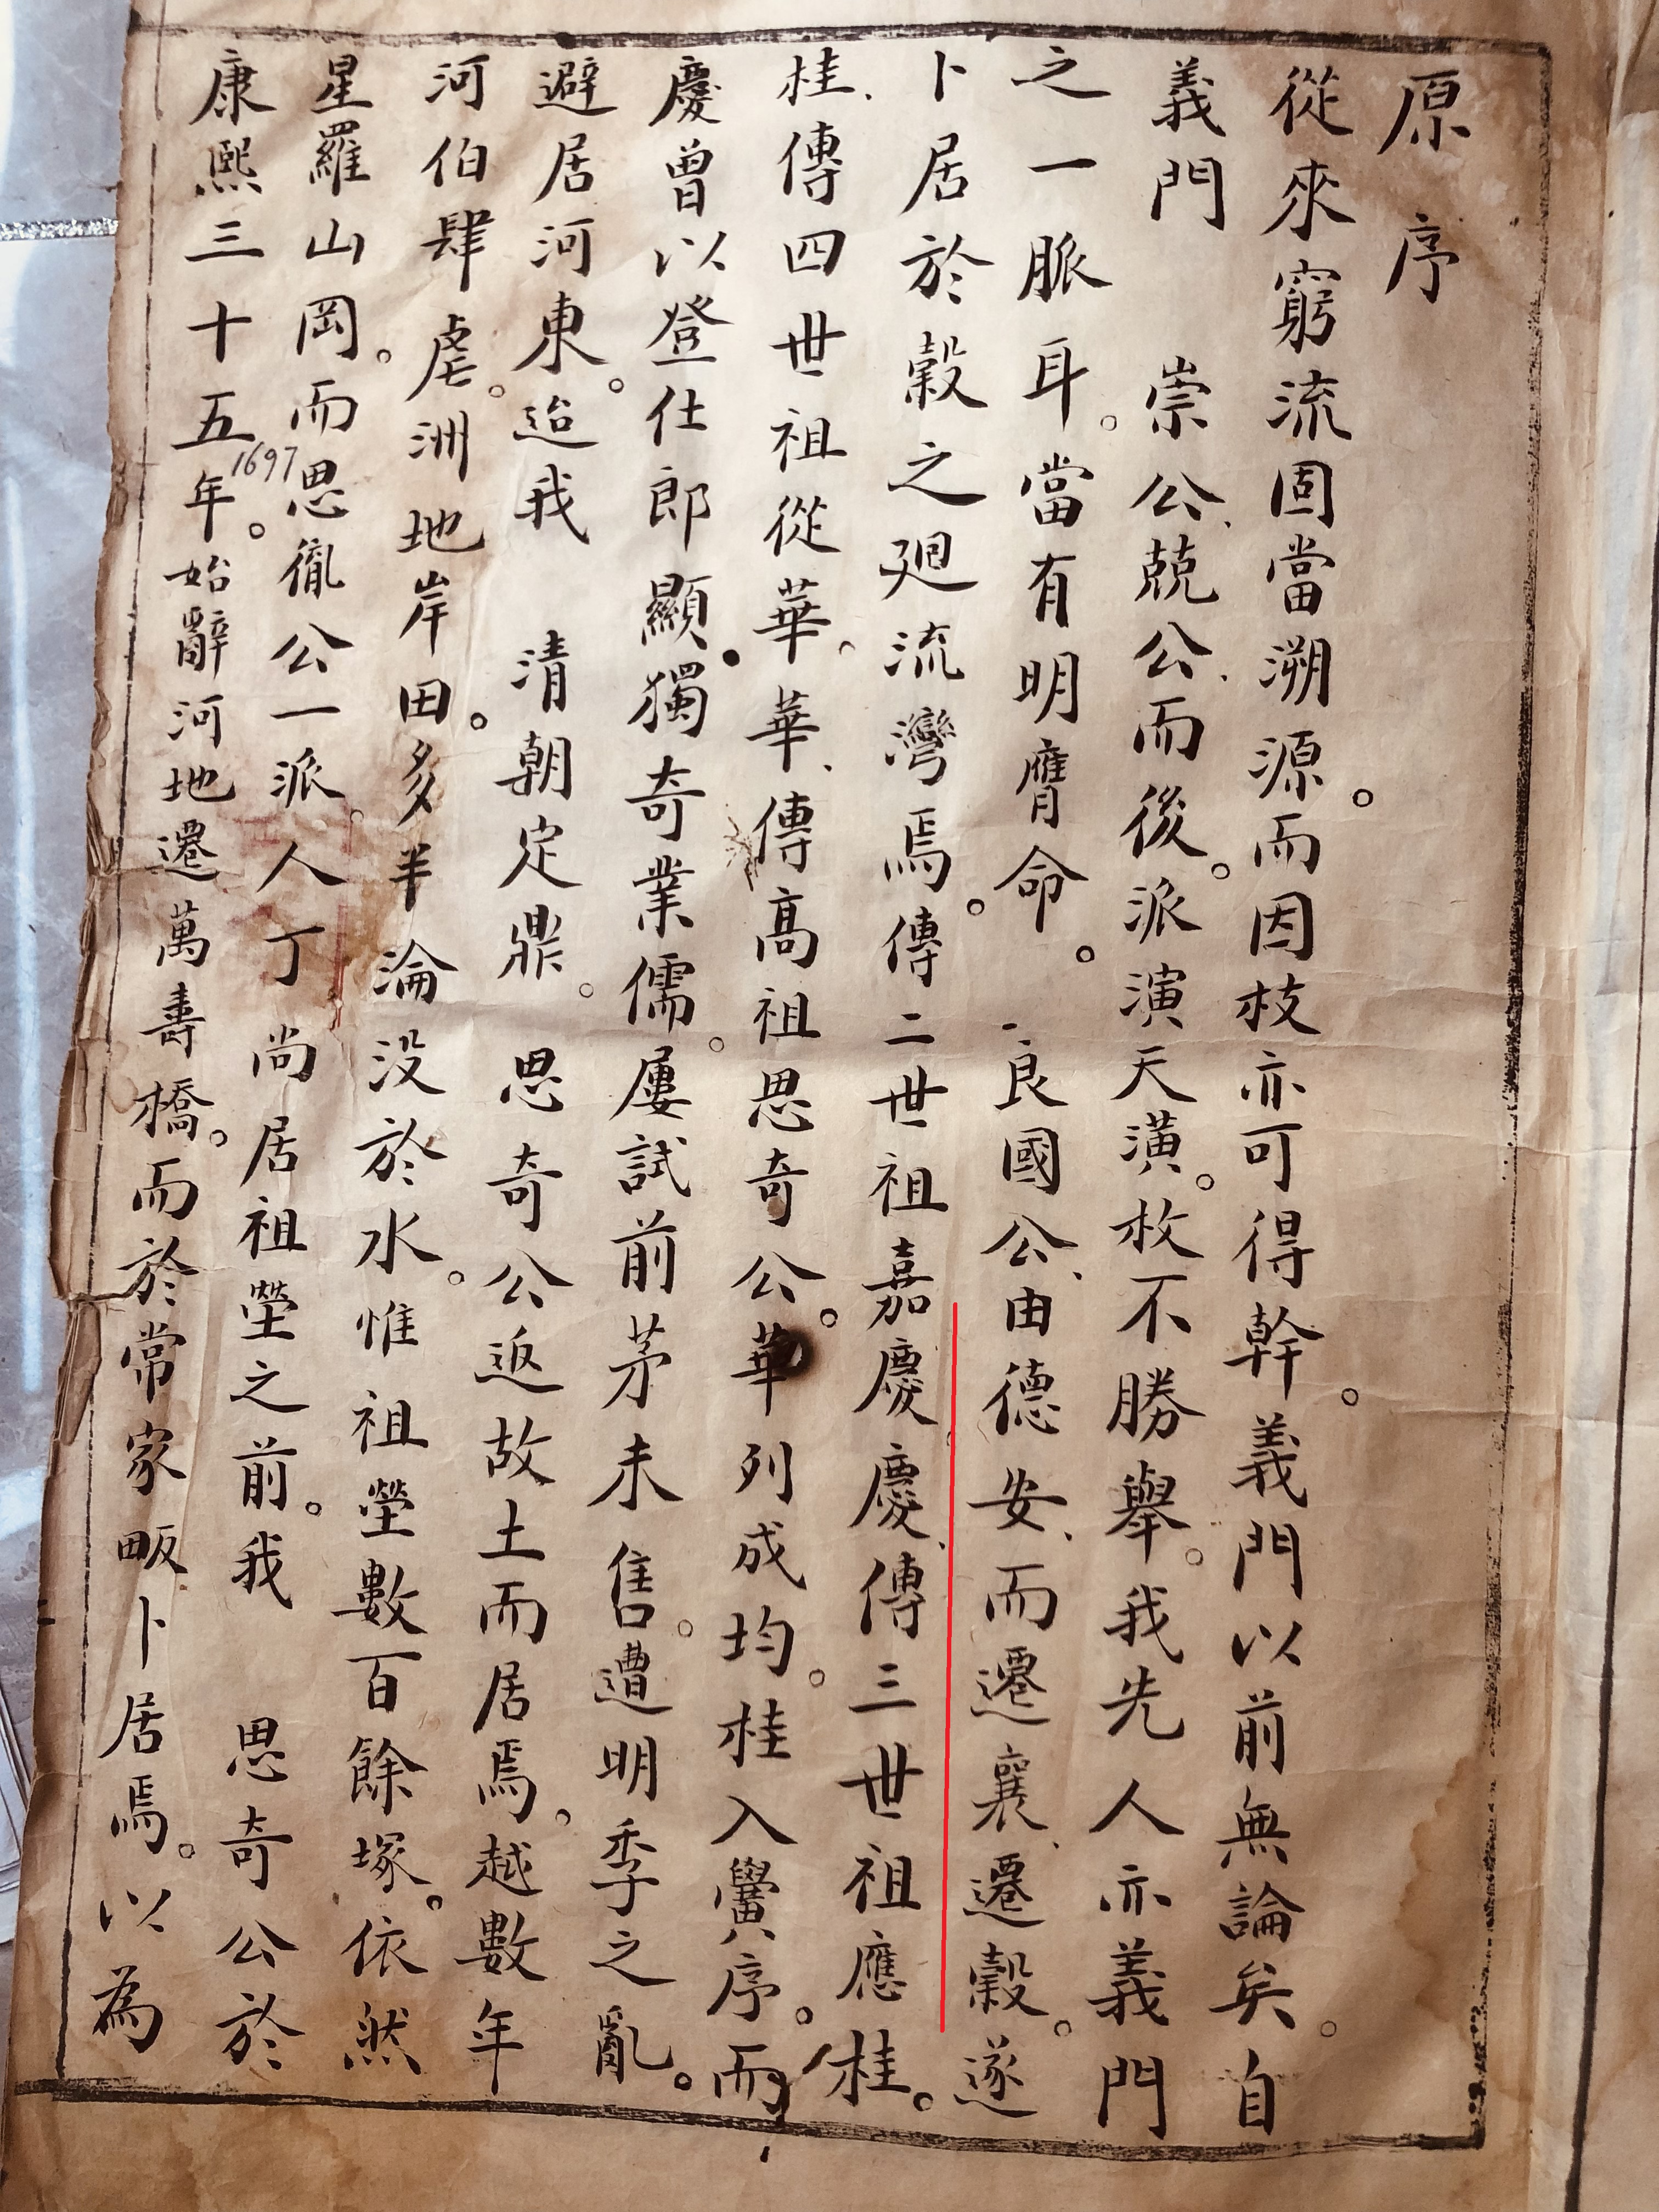 原序
從來窮流固當溯源。而因枝亦可得幹。義門以前無論矣。自
義門 崇公、兢公、而後。派演天潢。枚不勝舉。我先人亦義門
之一脈耳。當有明膺命。良國公、由德安、而遷襄、遷穀。遂
卜居於穀之廻流灣焉。傳二世祖嘉慶、慶、傳三世祖應桂。
桂、傳四世祖從華。華、傳高祖思奇公。華列成均。桂入黌序。而
慶曾以登仕郎顯。獨奇業儒。屢試前茅未售。遭明季之亂。
避居河東。迨我 清朝定鼎。思奇公返故土而居焉。越數年
河伯肆虐。洲地岸田。多半淪没於水。惟祖塋數百餘塚。依然
星羅山岡。而思胤公一派。人丁尚居祖塋之前。我 思奇公於
康熙三十五年。始辭河地遷萬壽橋。而於常家畈卜居焉。以為
1697